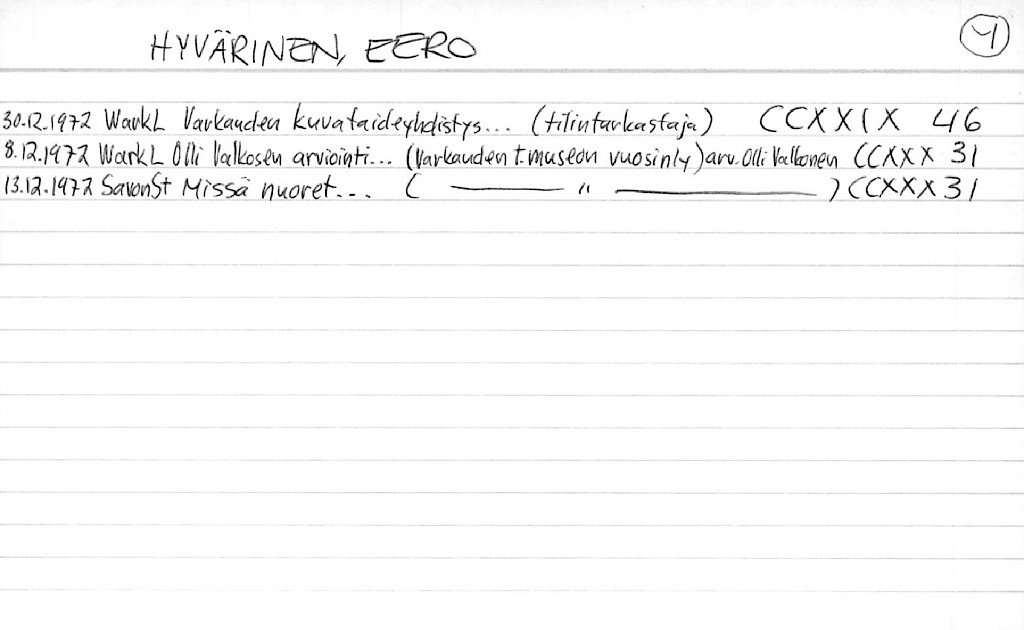 HYVÄRINEN, EERO
30.12.1972 WarkL Varkauden kuvataideyhdistys... (tilintarkastaja) CCXXIX 46
8.12.1972 WarkL Olli Valkosen arviointi... (Varkauden t.museon vuosinly) arv. Olli Valkonen CCXXX 31
13.12.1972 SavonSt Missä nuoret... ( ——— " ——— ) CCXXX 31